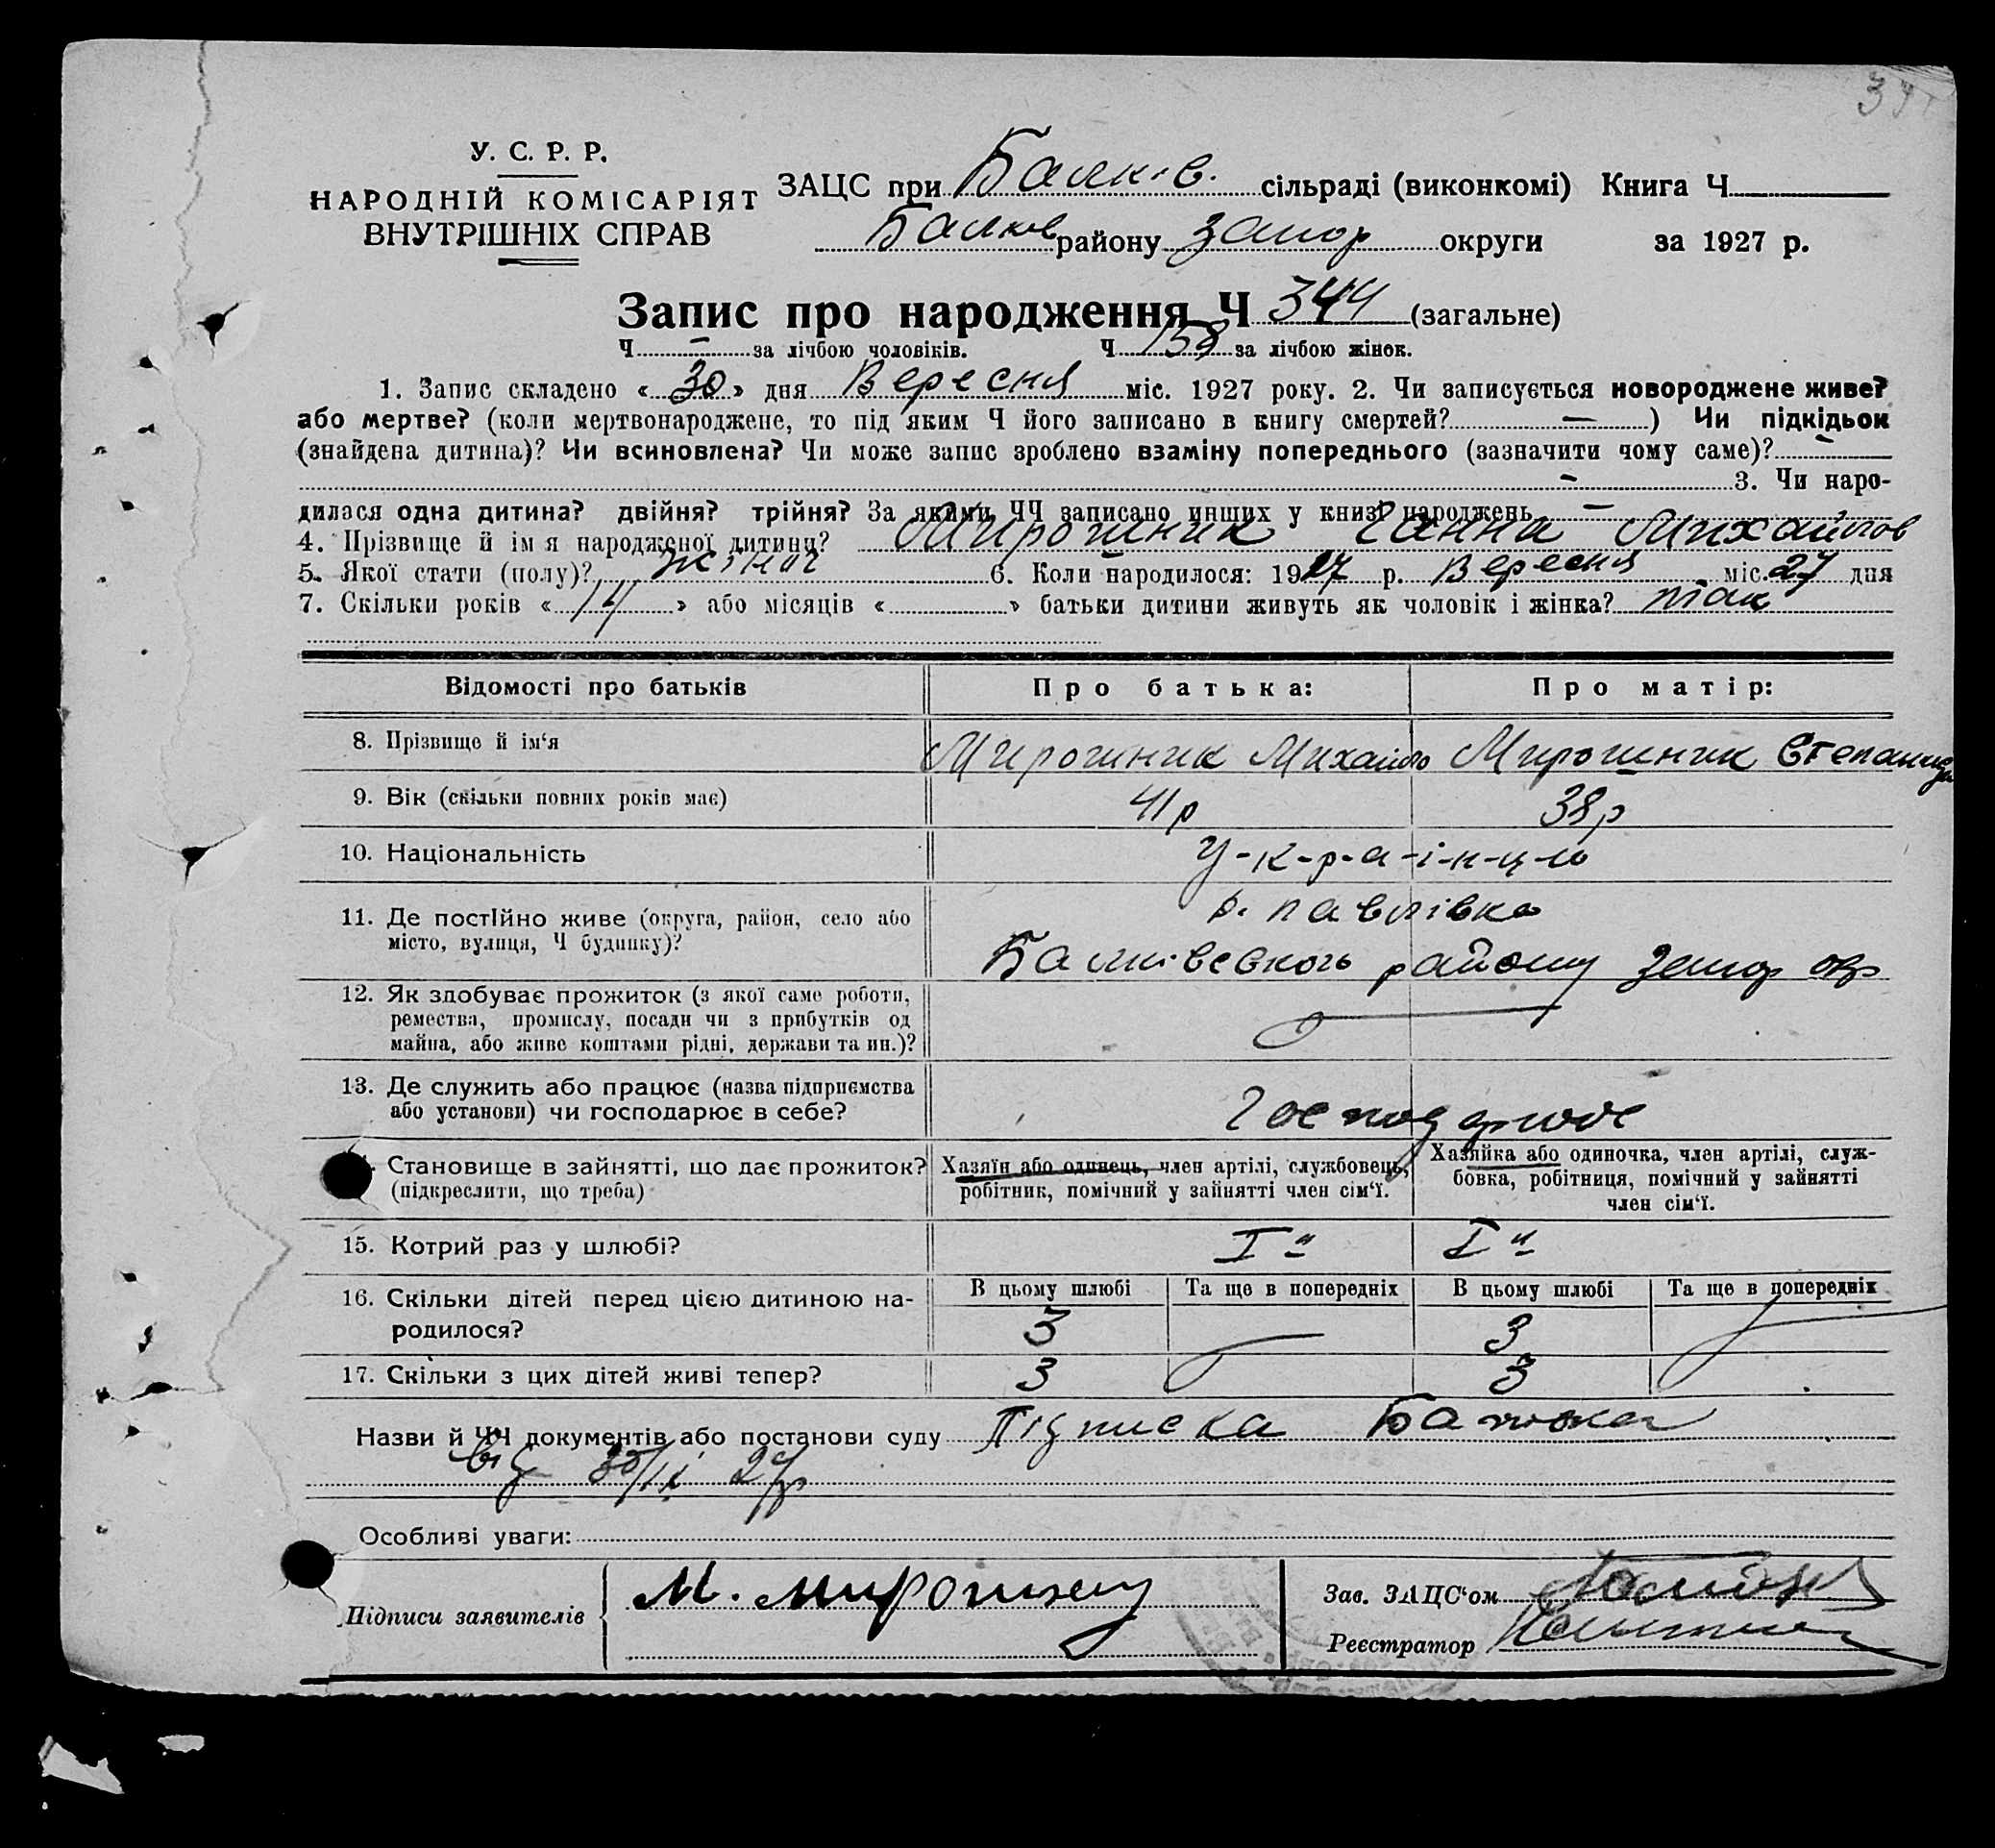 У. С. Р. Р.
НАРОДНІЙ КОМІСАРІЯТ
ВНУТРІШНІХ СПРАВ
ЗАЦС при Балків. сільраді (виконкомі) Книга Ч
Балков району Запор округи за 1927 р.
Запис про народження Ч 344 (загальне)
Ч — за лічбою чоловіків. Ч 158 за лічбою жінок.
1. Запис складено « 30 » дня Вересня міс. 1927 року. 2. Чи записується новороджене живе?
або мертве? (коли мертвонароджене, то під яким Ч його записано в книгу смертей? — ) Чи підкідьок
(знайдена дитина)? Чи всиновлена? Чи може запис зроблено взаміну попереднього (зазначити чому саме)? —
— 3. Чи наро-
дилася одна дитина? двійня? трійня? За якими ЧЧ записано инших у книзі народжень —
4. Прізвище й ім я народженої дитини? Мирошник Ганна Михайлов
5. Якої стати (полу)? жіноч 6. Коли народилося: 1927 р. Вересня міс. 27 дня
7. Скільки років « 14 » або місяців « » батьки дитини живуть як чоловік і жінка? так
Відомості про батьків Про батька: Про матір:
8. Прізвище й ім‘я Мирошник Михайло Мирошник Степанида
9. Вік (скільки повних років має) 41 р 38 р
10. Національність У-к-р-а-ї-н-ц-і
11. Де постійно живе (округа, район, село або
місто, вулиця, Ч будинку)?
Павлівка
Балківського району Запор окр
12. Як здобуває прожиток (з якої саме роботи,
ремества, промислу, посади чи з прибутків од
майна, або живе коштами рідні, держави та ин.)?
13. Де служить або працює (назва підприємства
або установи) чи господарює в себе?
Господарює
Становище в зайнятті, що дає прожиток?
(підкреслити, що треба)
Хазяїн або одинець, член артілі, службовець,
робітник, помічний у зайнятті член сім‘ї.
Хазяйка або одиночка, член артілі, служ-
бовка, робітниця, помічний у зайнятті
член сім‘ї.
15. Котрий раз у шлюбі? I й I й
16. Скільки дітей перед цією дитиною на-
родилося?
В цьому шлюбі Та ще в попередніх В цьому шлюбі Та ще в попередніх
3 — 3 —
17. Скільки з цих дітей живі тепер? 3 — 3 —
Назви й ЧЧ документів або постанови суду Підписка Батька
від 30/IX 27р
Особливі уваги:
Підписи заявителів М. Мирошнічу
Зав. ЗАЦС‘ом
Реєстратор